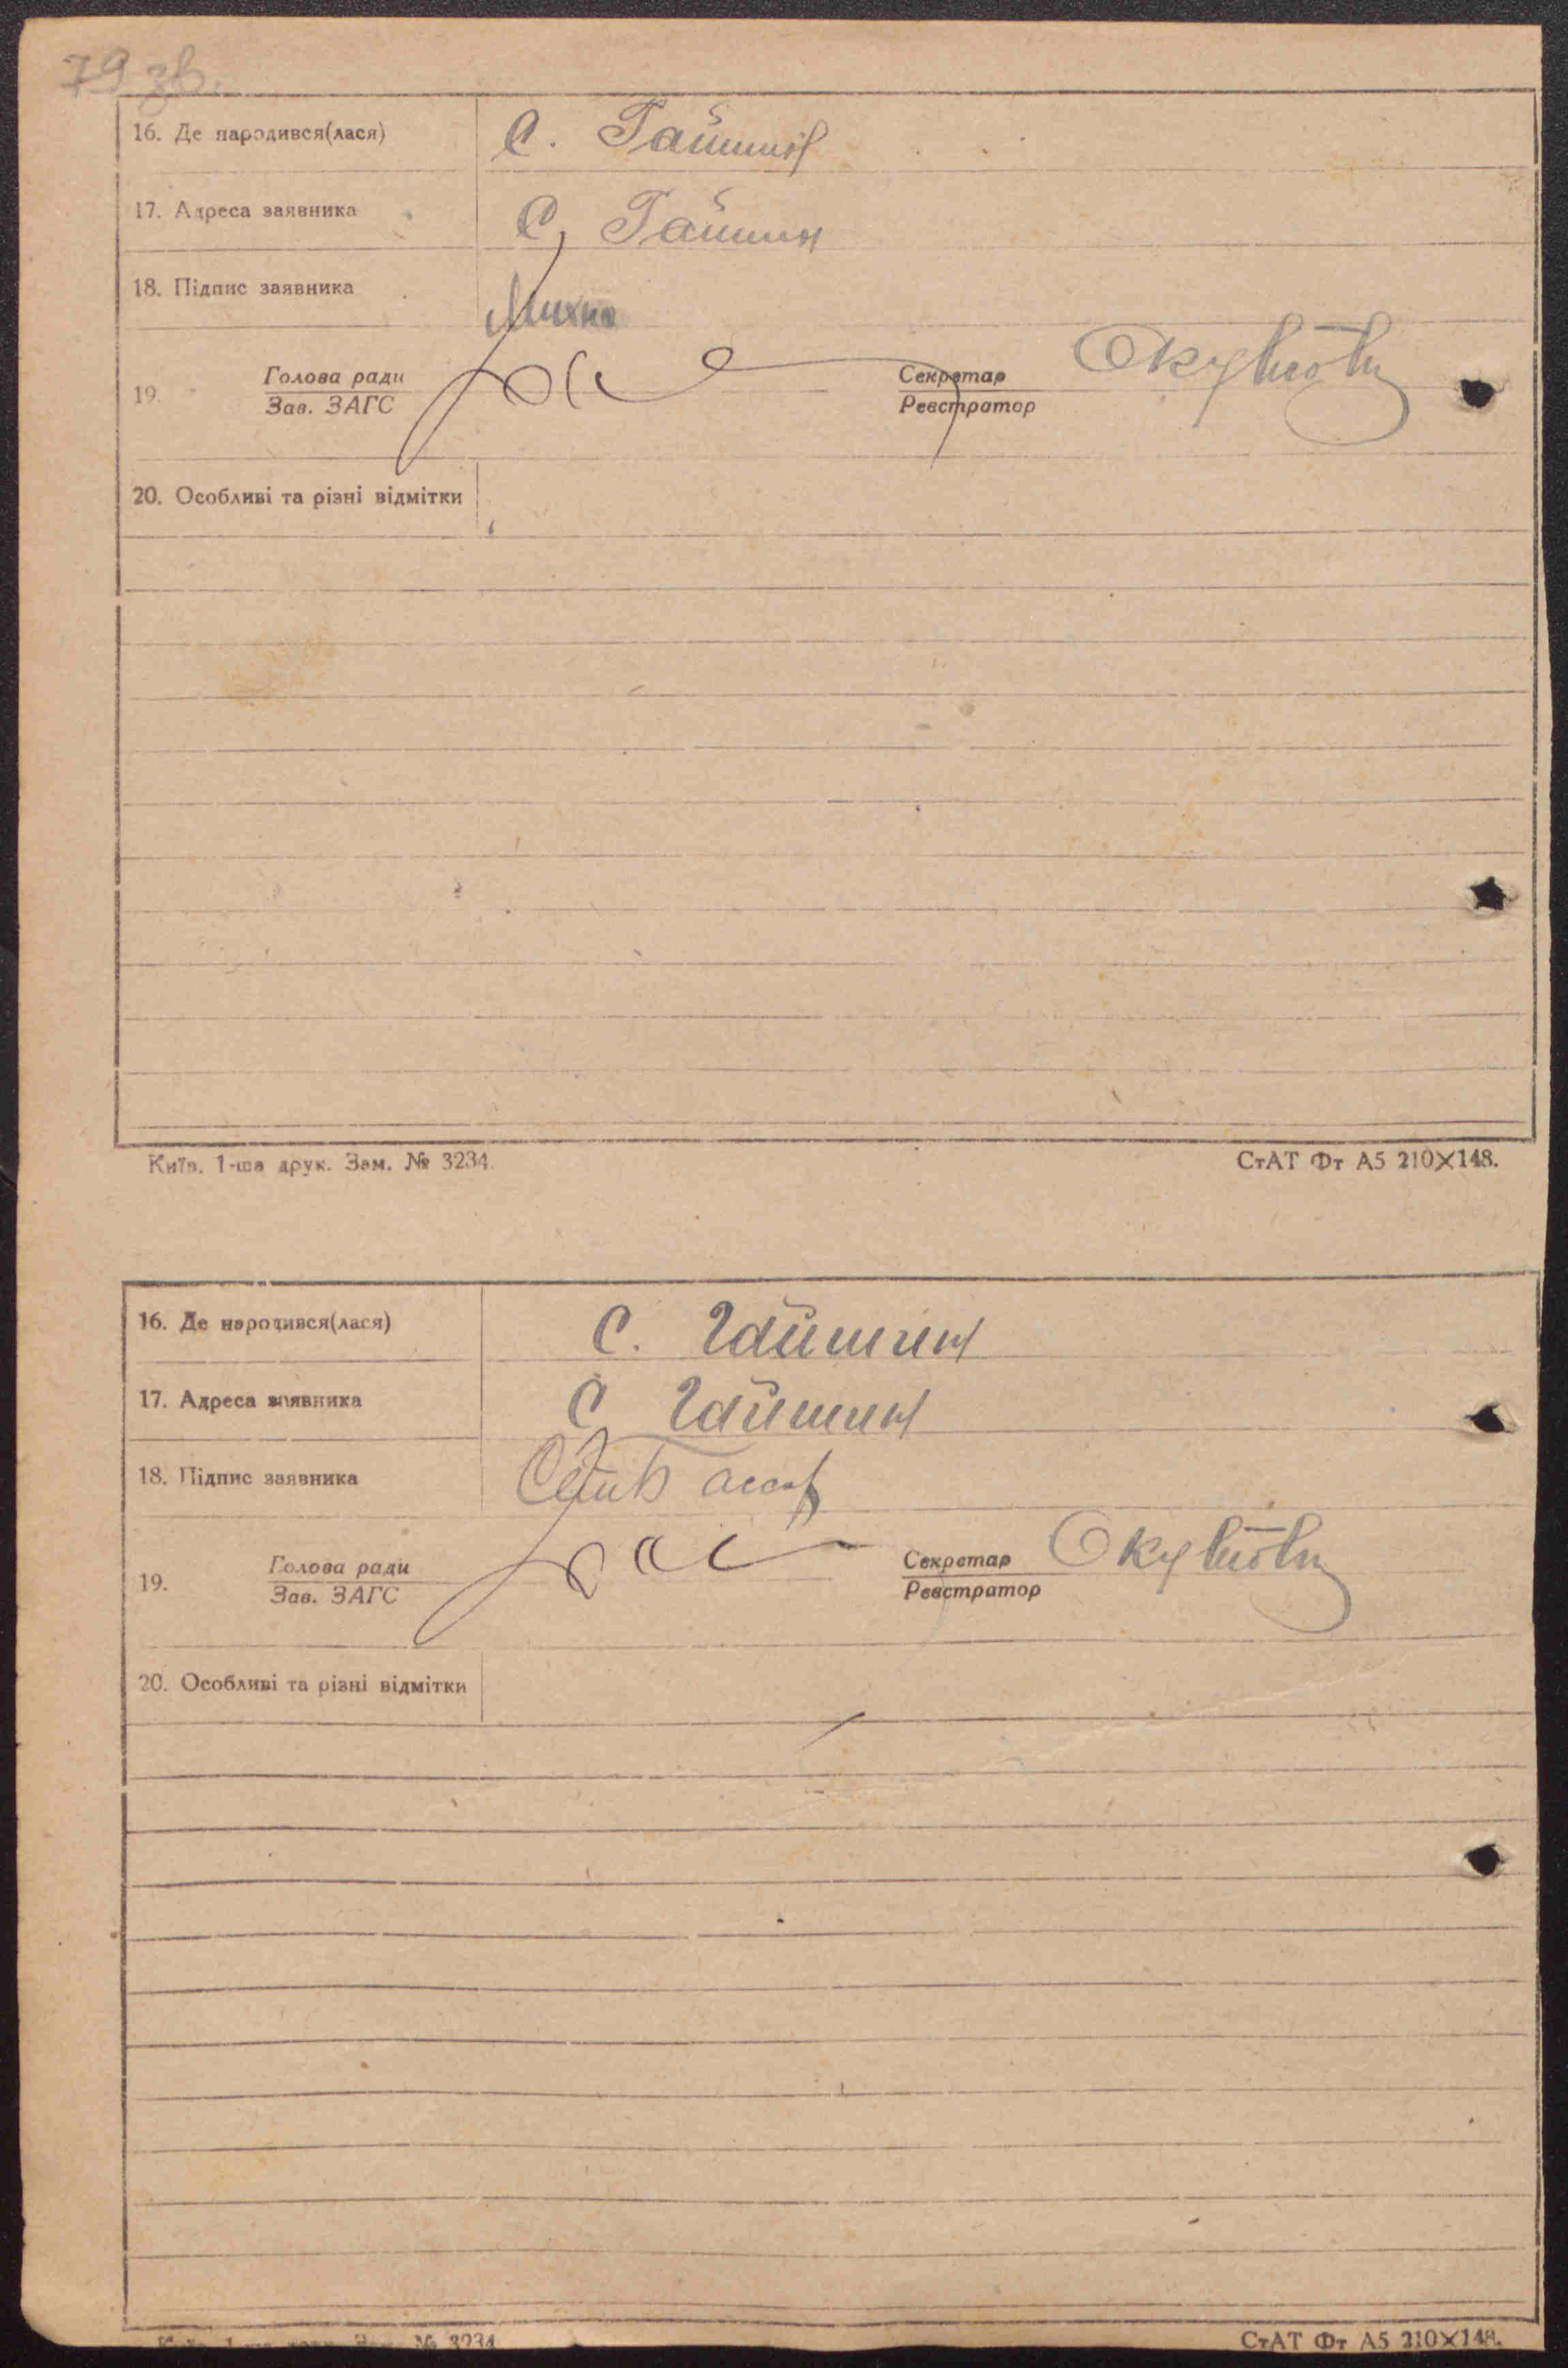 79 зв.
16. Де народився(лася) С. Гайшин
17. Адреса заявника С. Гайшин
18. Підпис заявника Михно
19. Голова ради Секретар
Зав. ЗАГС Реєстратор
20. Особливі та різні відмітки
Київ. 1-ша друк. Зам. № 3234. СтАТ Фт А5 210×148.
16. Де народився(лася) С. Гайшин
17. Адреса заявника С Гайшин
18. Підпис заявника
19. Голова ради Секретар
Зав. ЗАГС Реєстратор
20. Особливі та різні відмітки
Київ. 1-ша друк. Зам. № 3234 СтАТ Фт А5 210×148.